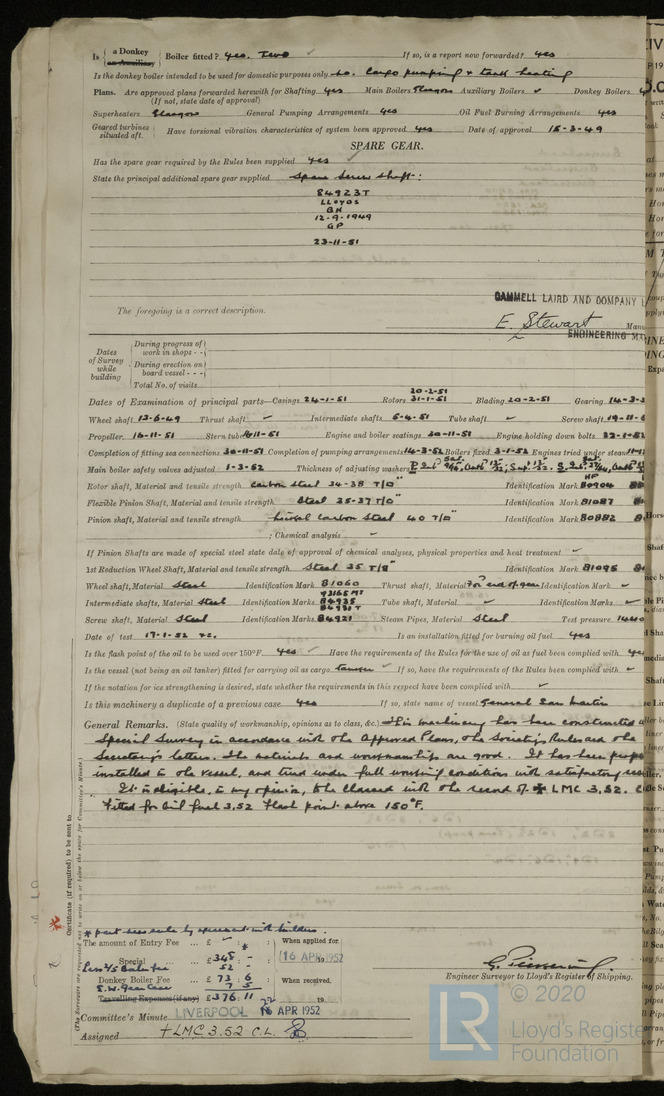 Is a Donkey ~~or Auxiliary~~ Boiler fitted? yes. Two If so, is a report now forwarded? yes
Is the donkey boiler intended to be used for domestic purposes only no. Cargo pumping & tank heating
Plans. Are approved plans forwarded herewith for Shafting yes Main Boilers Glasgow Auxiliary Boilers Donkey Boilers
(If not, state date of approval)
Superheaters Glasgow General Pumping Arrangements yes Oil Fuel Burning Arrangements yes
Geared turbines situated aft. Have torsional vibration characteristics of system been approved yes Date of approval 15-3-49
SPARE GEAR.
Has the spare gear required by the Rules been supplied yes
State the principal additional spare gear supplied Spare screw shaft:
84923T
LLOYDS
BH
12-9-1949
GP
23-11-51
The foregoing is a correct description.
CAMMELL LAIRD AND COMPANY
E. Stewart
ENGINEERING
Dates of Survey while building
During progress of work in shops - -
During erection on board vessel - - -
Total No. of visits
20-2-51
Dates of Examination of principal parts—Casings 24-1-51 Rotors 31-1-51 Blading 20-2-51 Gearing
Wheel shaft 13-6-49 Thrust shaft Intermediate shafts 5-4-51 Tube shaft Screw shaft
Propeller 16-11-51 Stern tube Engine and boiler seatings 30-11-51 Engine holding down bolts
Completion of fitting sea connections 30-11-51 Completion of pumping arrangements 14-3-52 Boilers fixed 3-1-52 Engines tried under steam
Main boiler safety valves adjusted 1-3-52 Thickness of adjusting washers
Rotor shaft, Material and tensile strength carbon steel 34-38 T/□" Identification Mark 80904
Flexible Pinion Shaft, Material and tensile strength Steel 35-37 T/□" Identification Mark 81087
Pinion shaft, Material and tensile strength Nickel Carbon Steel 40 T/□" Identification Mark 80882
; Chemical analysis
If Pinion Shafts are made of special steel state date of approval of chemical analyses, physical properties and heat treatment
1st Reduction Wheel Shaft, Material and tensile strength Steel 35 T/□" Identification Mark 81095
Wheel shaft, Material Steel Identification Mark 81060 Thrust shaft, Material For'd end of gear Identification Mark
Intermediate shafts, Material Steel Identification Marks 84935 Tube shaft, Material Identification Marks
Screw shaft, Material Steel Identification Marks 84921 Steam Pipes, Material Steel Test pressure
Date of test 17-1-52 Is an installation fitted for burning oil fuel yes
Is the flash point of the oil to be used over 150°F. yes Have the requirements of the Rules for the use of oil as fuel been complied with
Is the vessel (not being an oil tanker) fitted for carrying oil as cargo tanker If so, have the requirements of the Rules been complied with
If the notation for ice strengthening is desired, state whether the requirements in this respect have been complied with
Is this machinery a duplicate of a previous case yes If so, state name of vessel General San Martin
General Remarks. (State quality of workmanship, opinions as to class, &c.) This machinery has been constructed
Special Survey in accordance with the Approved Plans, the Society's Rules and the
Secretary's letters. The materials and workmanship are good. It has been
installed in the vessel, and tried under full working conditions with satisfactory
It is eligible, in my opinion, to be classed with the record of ✠ LMC 3,52.
Fitted for oil fuel 3,52 Flash point above 150°F.
Certificate (if required) to be sent to
(The Surveyors are requested not to write on or below the space for Committee's Minute.)
The amount of Entry Fee ... £ : : When applied for,
Special ... £ 345 : 16 APR 1952
Less 2/5 Boiler fee 52
Donkey Boiler Fee ... £ 73 : 6 : When received,
E.W. Gen Fees 7 5
~~Travelling Expenses (if any)~~ £ 376 : 11 : 19
Engineer Surveyor to Lloyd's Register of Shipping.
Committee's Minute LIVERPOOL APR 1952
Assigned +LMC 3.52 C.L.
© 2020
LR Lloyd's Register
Foundation